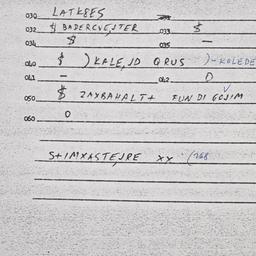 030 LATKEES
032 $ BADERCVESTER 033 $
034 $ 035 —
040 $ ) KALE, JD QRUS )-KALEDE
041 — 042 D
050 $ ZAXBAHALT+ FUN DI GOJIM
060 O
S+IMXASTEJRE XX (268